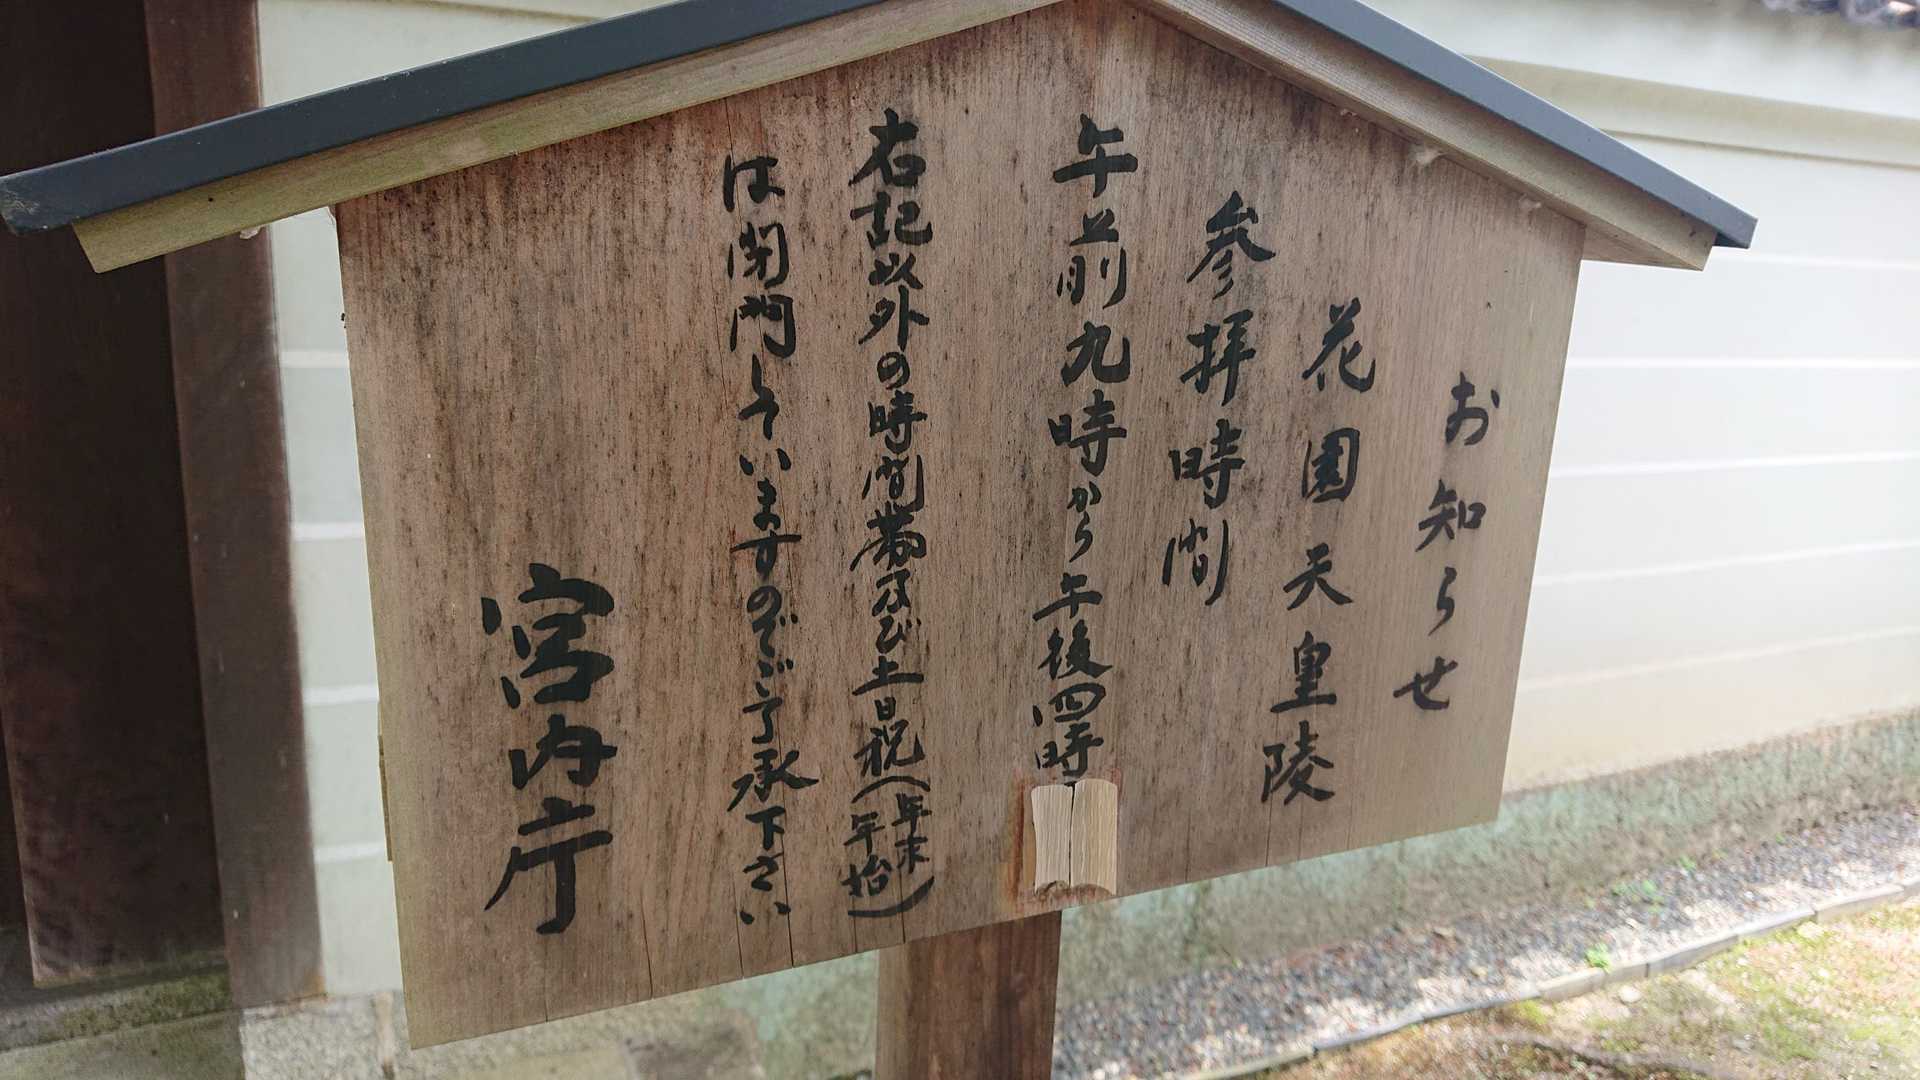 お知らせ
花園天皇陵
参拝時間
午前九時から午後四時
右記以外の時間帯及び土日祝(年末年始)
は閉門していますのでご了承下さい
宮内庁